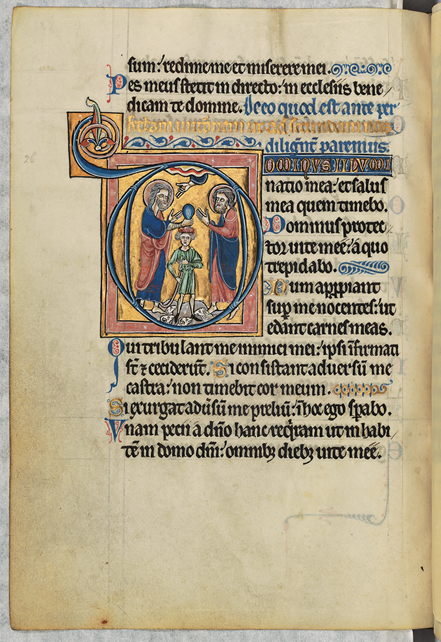 sum: redime me et miserere mei.
Pes meus stetit in directo: in ecclesiis bene
dicam te domine.
diligent parentus.
DOMINUS ILLUMI
natio mea: et salus
mea quem timebo.
Dominus protec
tor uite mee: a quo
trepidabo.
Dum appropiant
sup me nocentes: ut
edant carnes meas.
Qui tribulant me inimici mei: ipsi infirmati
st & ceciderunt. Si consistant aduersum me
castra: non timebit cor meum.
Si exurgat aduersum me prelium: in hoc ego sperabo.
Unam pecii a dno hanc requiram ut in habi
tem in domo dni: omnibus diebus uite mee.